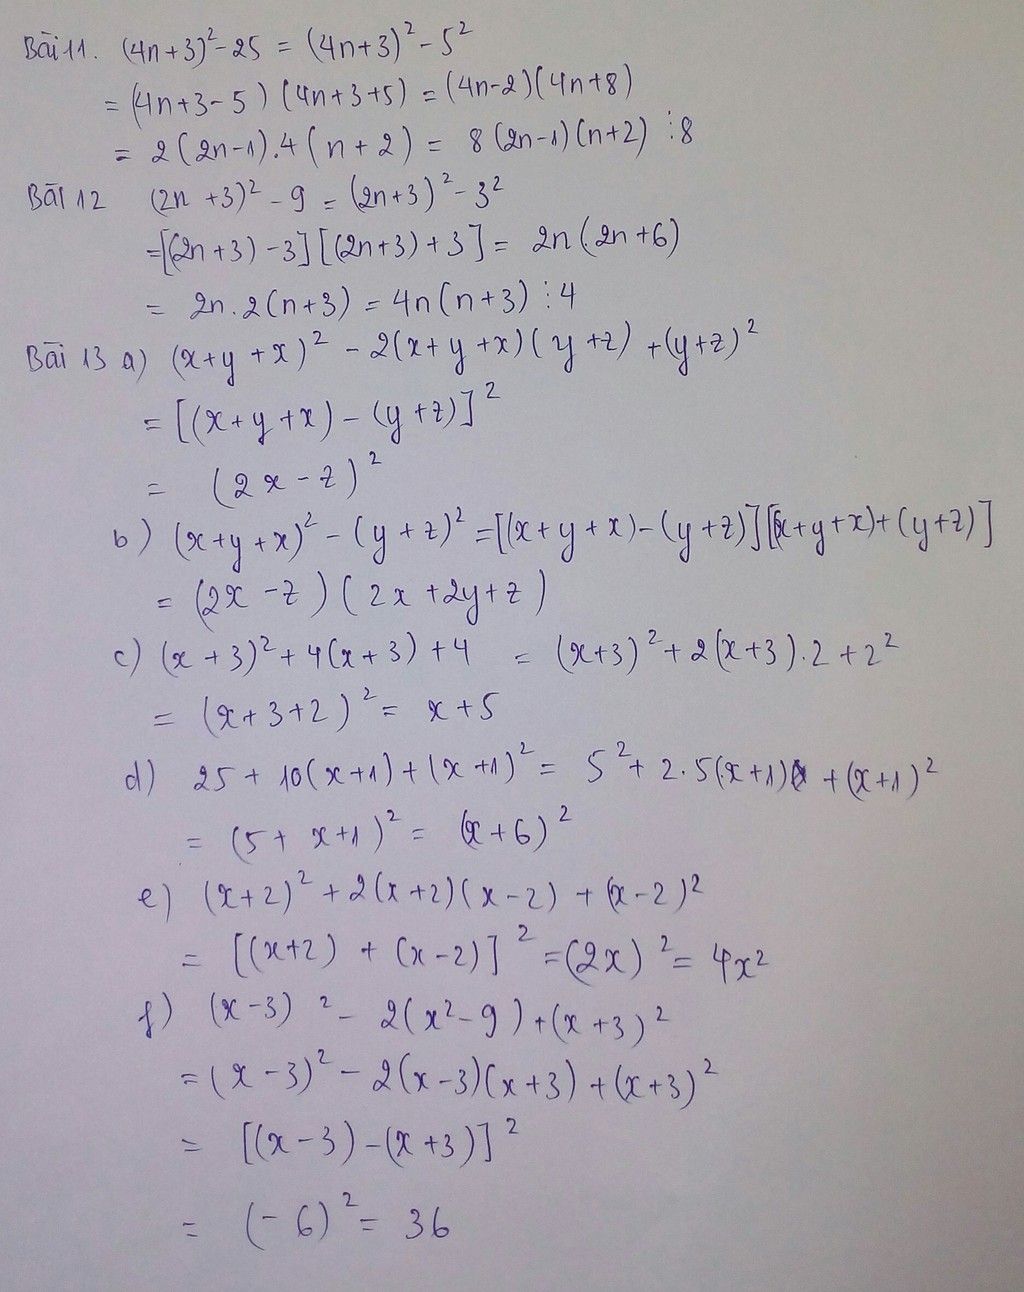 Bài 11. (4n+3)² - 25 = (4n+3)² - 5²
= (4n+3-5) (4n+3+5) = (4n-2)(4n+8)
= 2(2n-1).4(n+2) = 8(2n-1)(n+2) ⋮8
Bài 12 (2n+3)² - 9 = (2n+3)² - 3²
=[(2n+3)-3][(2n+3)+3] = 2n(2n+6)
= 2n.2(n+3) = 4n(n+3) ⋮4
Bài 13 a) (x+y+x)² - 2(x+y+x)(y+z) +(y+z)²
= [(x+y+x) - (y+z)]²
= (2x-z)²
b) (x+y+x)² - (y+z)² =[(x+y+x)-(y+z)][(x+y+x)+(y+z)]
= (2x-z)(2x+2y+z)
c) (x+3)²+4(x+3)+4 = (x+3)²+2(x+3).2+2²
= (x+3+2)² = x+5
d) 25+10(x+1)+(x+1)² = 5²+2.5(x+1) +(x+1)²
= (5+x+1)² = (x+6)²
e) (x+2)²+2(x+2)(x-2)+(x-2)²
= [(x+2)+(x-2)]² =(2x)² = 4x²
f) (x-3)² - 2(x²-9)+(x+3)²
= (x-3)² - 2(x-3)(x+3)+(x+3)²
= [(x-3)-(x+3)]²
= (-6)² = 36